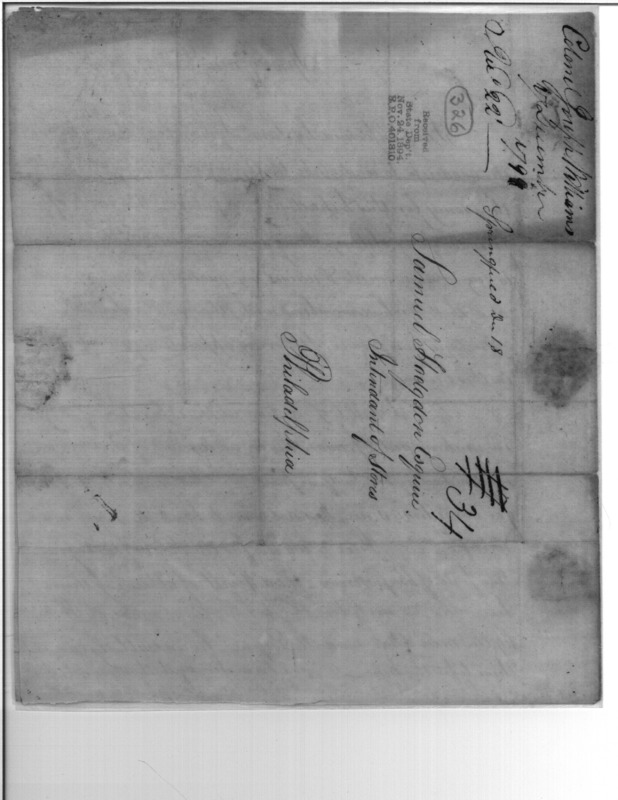 Colonel Joseph Williams
December
22d 1798
326
Received
from
State Dep't.
Nov. 24, 1894.
R.P.O. 401810.
Springfield De 18
#34
Samuel Hodgdon Esquire.
Intendant of Stores
Philadelphia